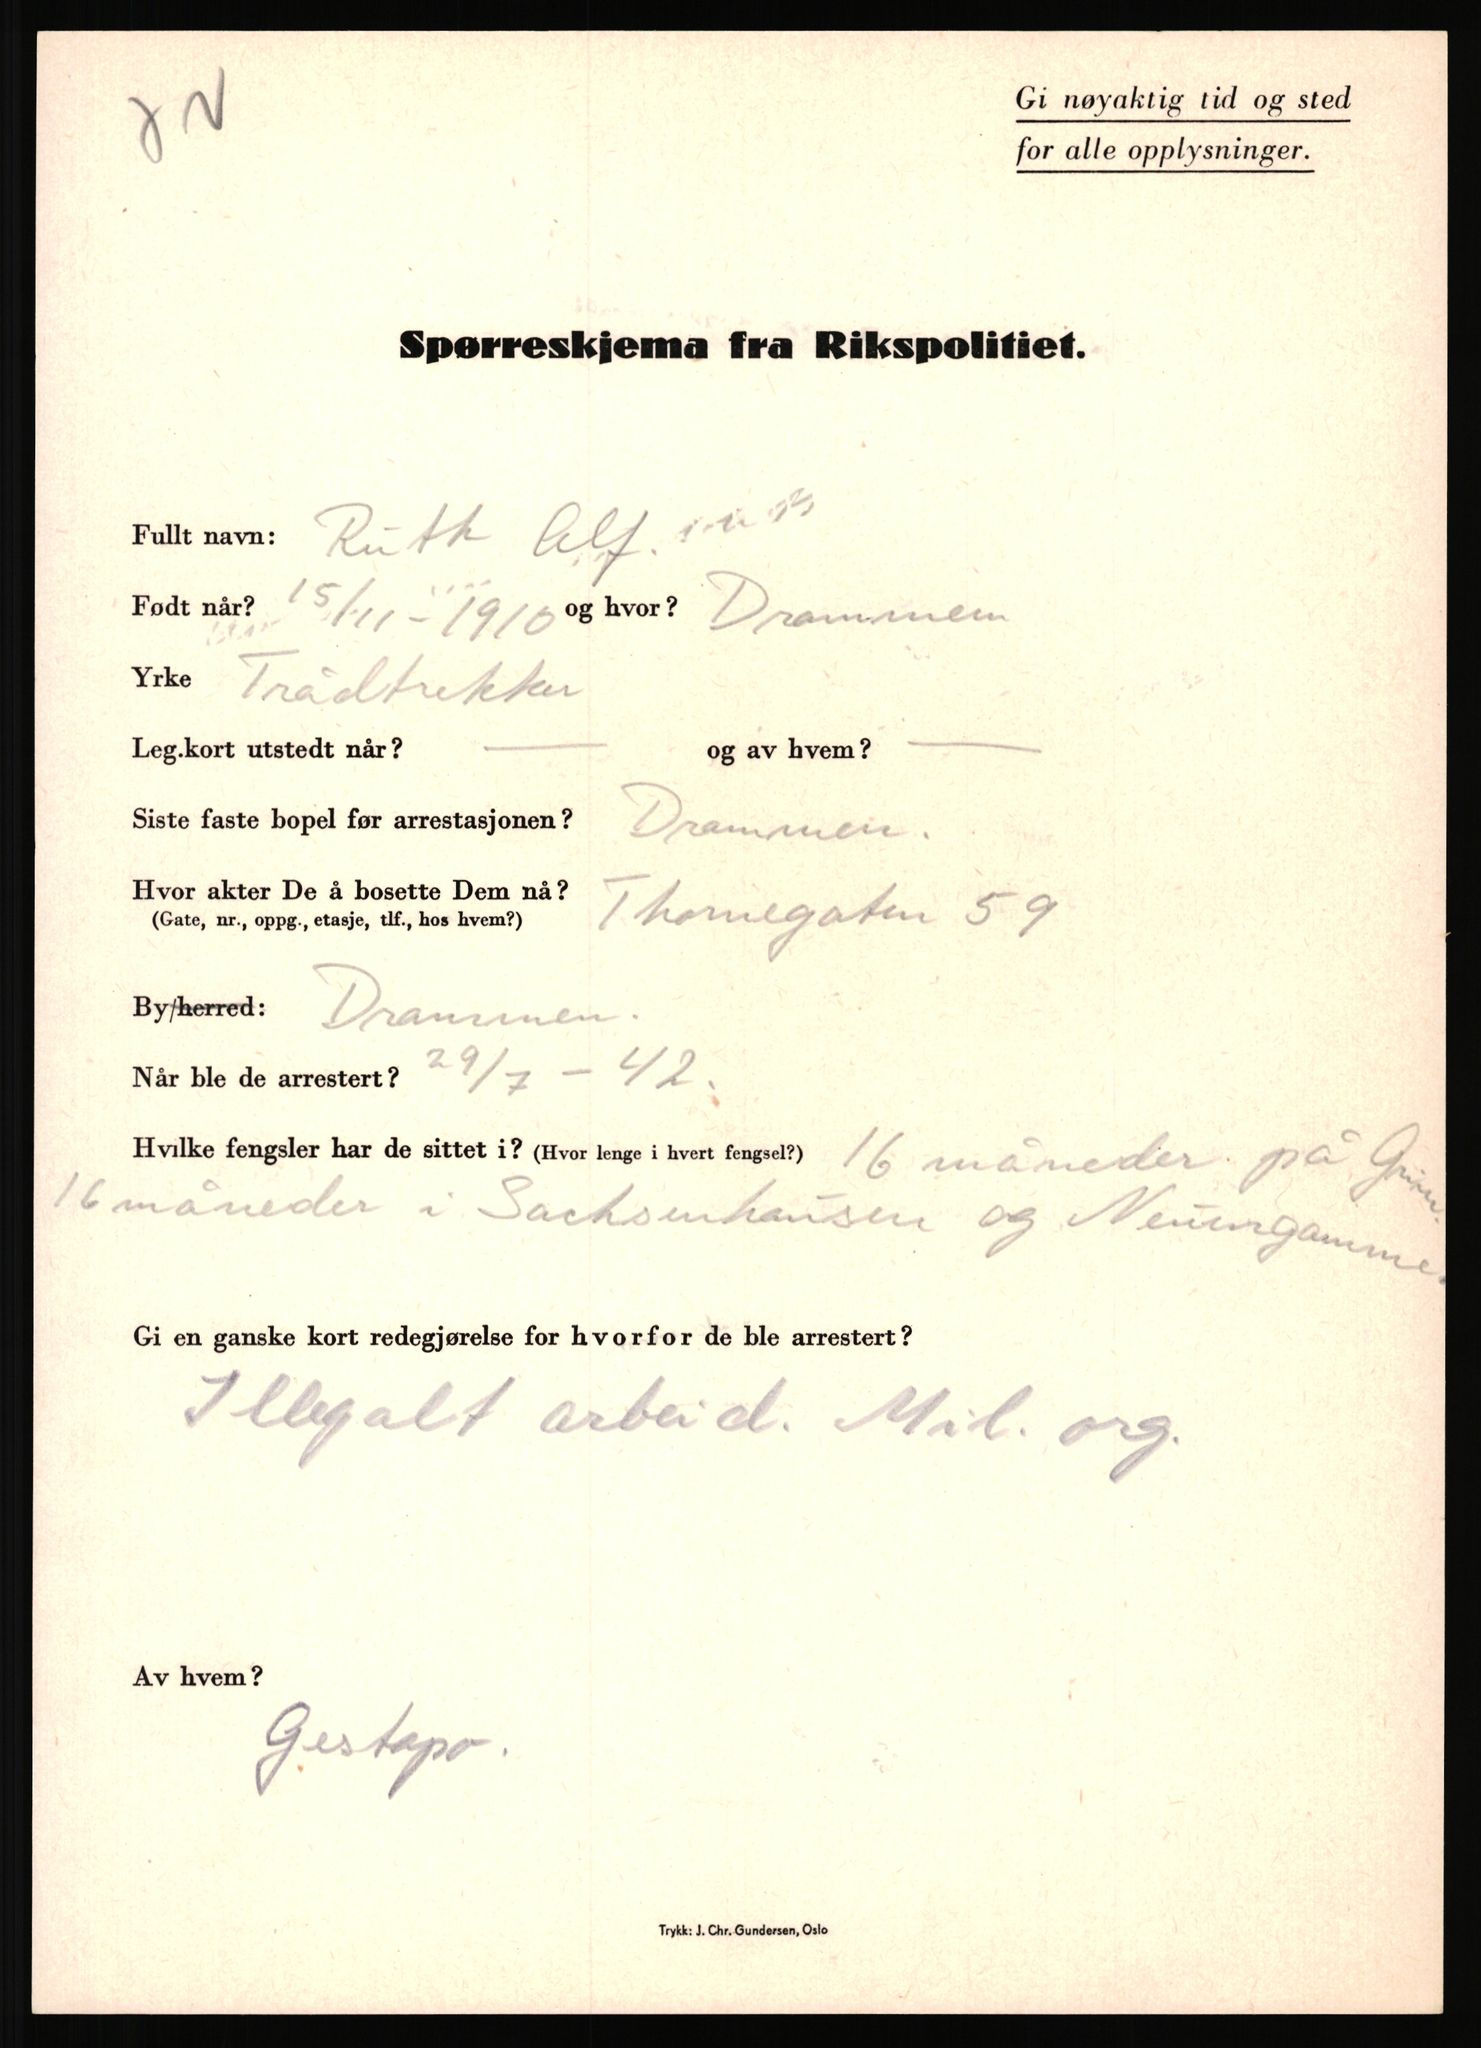 Gi nøyaktig tid og sted
for alle opplysninger.
Spørreskjema fra Rikspolitiet.
Fullt navn: Ruth Alf.
Født når? 15/11-1910 og hvor? Drammen
Yrke Trådtrekker
Leg.kort utstedt når? — og av hvem? —
Siste faste bopel før arrestasjonen? Drammen.
Hvor akter De å bosette Dem nå? Thornegaten 59
(Gate, nr., oppg., etasje, tlf., hos hvem?)
By/herred: Drammen.
Når ble de arrestert? 29/7-42.
Hvilke fengsler har de sittet i? (Hvor lenge i hvert fengsel?) 16 måneder på Grini.
16 måneder i Sachsenhausen og Neuengamme.
Gi en ganske kort redegjørelse for hvorfor de ble arrestert?
Illegalt arbeid. Mil. org.
Av hvem?
Gestapo.
Trykk: J. Chr. Gundersen, Oslo